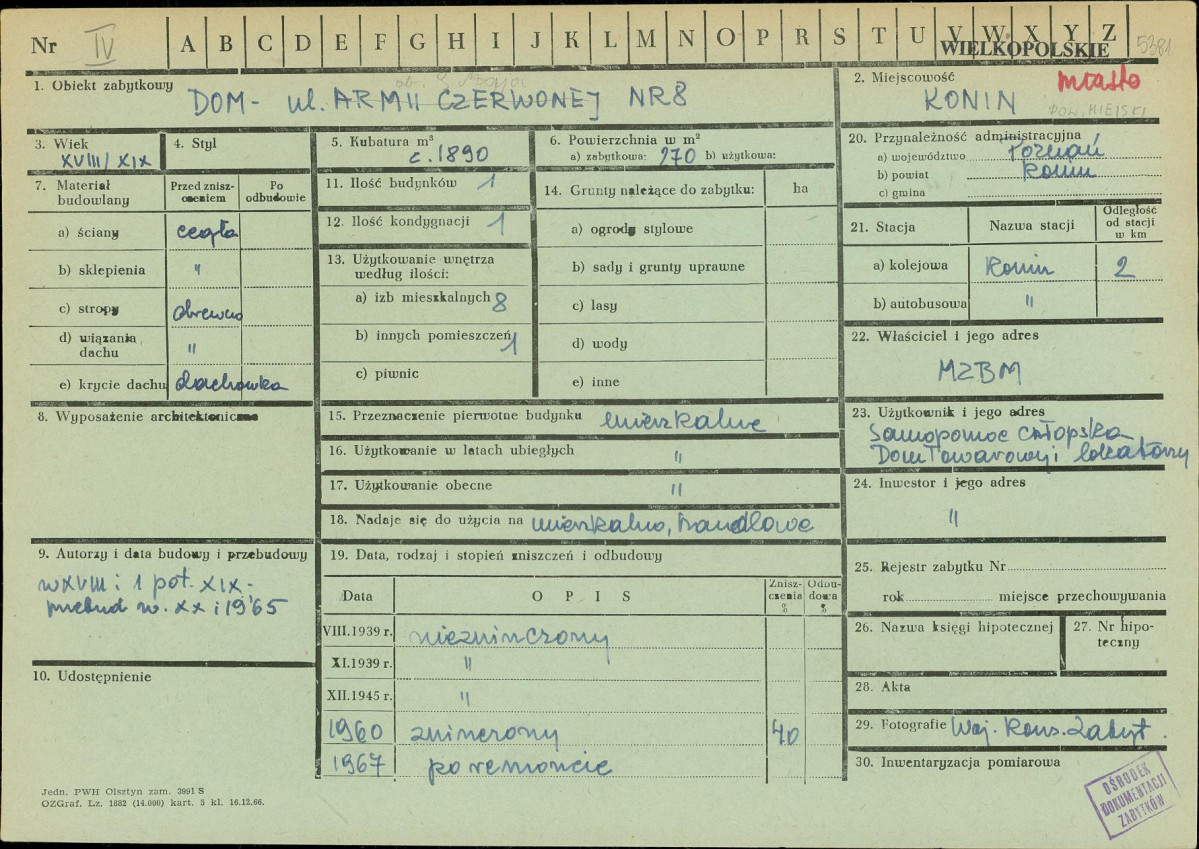 Nr IV A B C D E F G H I J K L M N O P R S T U V W X Y Z 5381
WIELKOPOLSKIE
1. Obiekt zabytkowy
DOM - ul. ARMII CZERWONEJ NR 8
2. Miejscowość
miasto
KONIN
POW. MIEJSKI
3. Wiek
XVIII/XIX
4. Styl
5. Kubatura m³
c. 1890
6. Powierzchnia w m²
a) zabytkowa: 270 b) użytkowa:
20. Przynależność administracyjna
a) województwo Poznań
b) powiat Konin
c) gmina
7. Materiał budowlany
Przed znisz-
czeniem
Po
odbudowie
a) ściany cegła
b) sklepienia "
c) stropy drewno
d) wiązania
dachu "
e) krycie dachu dachówka
11. Ilość budynków 1
12. Ilość kondygnacji 1
13. Użytkowanie wnętrza
według ilości:
a) izb mieszkalnych 8
b) innych pomieszczeń 1
c) piwnic
14. Grunty należące do zabytku: ha
a) ogrody stylowe
b) sady i grunty uprawne
c) lasy
d) wody
e) inne
21. Stacja Nazwa stacji
Odległość
od stacji
w km
a) kolejowa Konin 2
b) autobusowa "
22. Właściciel i jego adres
MZBM
8. Wyposażenie architektoniczne
15. Przeznaczenie pierwotne budynku mieszkalne
16. Użytkowanie w latach ubiegłych "
17. Użytkowanie obecne "
18. Nadaje się do użycia na mieszkalno, handlowe
23. Użytkownik i jego adres
Samopomoc Chłopska
Dom Towarowy i lokatorzy
24. Inwestor i jego adres
"
9. Autorzy i data budowy i przebudowy
w XVIII i 1 poł. XIX -
przebud w. XX i 1965
10. Udostępnienie
19. Data, rodzaj i stopień zniszczeń i odbudowy
Data OPIS
Znisz-
czenia
%
Odbu-
dowa
%
VIII.1939 r. niezniszczony
XI.1939 r. "
XII.1945 r. "
1960 zniszczony 40
1967 po remoncie
25. Rejestr zabytku Nr
rok miejsce przechowywania
26. Nazwa księgi hipotecznej
27. Nr hipo-
teczny
28. Akta
29. Fotografie Woj. Kons. Zabyt.
30. Inwentaryzacja pomiarowa
OŚRODEK
DOKUMENTACJI
ZABYTKÓW
Jedn. PWH Olsztyn zam. 3991 S
OZGraf. Lz. 1882 (14.000) kart. 5 kl. 16.12.66.